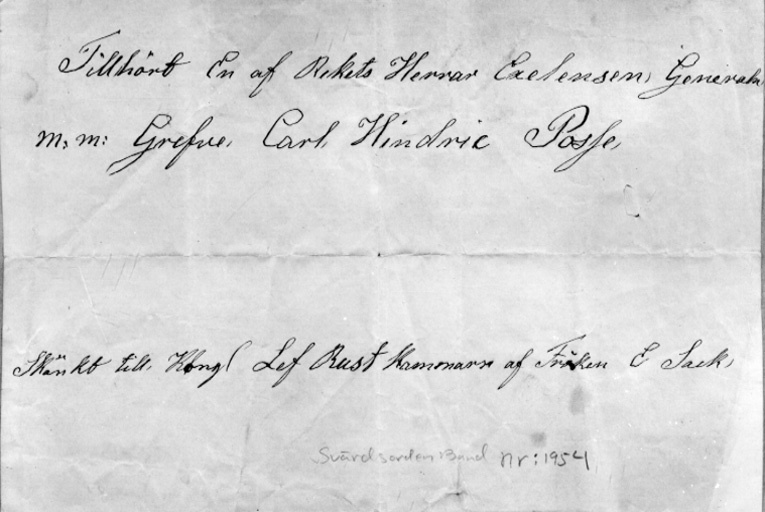 Tillhört En af Rikets Herrar Exelensen, Generalen
m, m: Grefve, Carl Hindric Posse,
Skänkt till, Kongl Lif Rust Kammaren af Fröken E Sack,
Svärdsorden Band nr: 1954